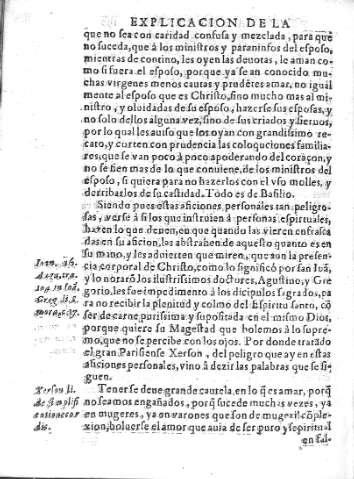 EXPLICACION DE LA
que no sea con caridad confusa y mezclada, para q̃
no suceda, que à los ministros y paraninfos del esposo,
mientras de contino, les oyen las deuotas, le aman co-
mo si fuera el esposo, porque ya se an conocido mu-
chas virgenes menos cautas y prudẽtes amar, no igual
mente al esposo que es Christo, sino mucho mas al mi-
nistro, y oluidadas de su esposo, hazerse sus esposas, y
no solo dellos alguna vez, sino de sus criados y sieruos,
por lo qual les auiso que los oyan con grandissimo re-
cato, y corten con prudencia las coloquciones familia-
res, que se van poco à poco apoderando del coraçon, y
no se fien mas de lo que conuiene, de los ministros del
esposo, si quiera para no hazerlos con el vso molles, y
derribarlos de su castidad. Todo es de Basilio.
Siendo pues estas aficiones personales tan peligro-
sas, verse à si los que instruien à personas espirituales,
hazen lo que deuen, en que quando las vieren enfrasca
das en su aficion, las abstrahen de aquesto quanto es en
su mano, y les advierten que miren, que aun la presen-
cia corporal de Christo, como lo significò por san Iuã,
y lo notarõ los ilustrissimos doctores, Agustino, y Gre
gorio, les fue impedimento à los dicipulos sagrados, pa
ra no recibir la plenitud y colmo del Espiritu santo, cõ
ser de carne purissima y supositada en el mismo Dios,
porque quiere su Magestad que bolemos à lo supre-
mo, que no se percibe con los ojos. Por donde tratado
el gran Parisiense Xerson, del peligro que ay en estas
aficiones personales, vino à dezir las palabras que se si-
guen.
Xerson li.
Tenerse deue grande cautela, en lo q̃ es amar, porq̃
no seamos engañados, por q̃ sucede muchas vezes, ya
en mugeres, ya en varones que son de mugeril cõple-
dis.
xion, boluerse el amor que auia de ser puro y espiritual
en sal-